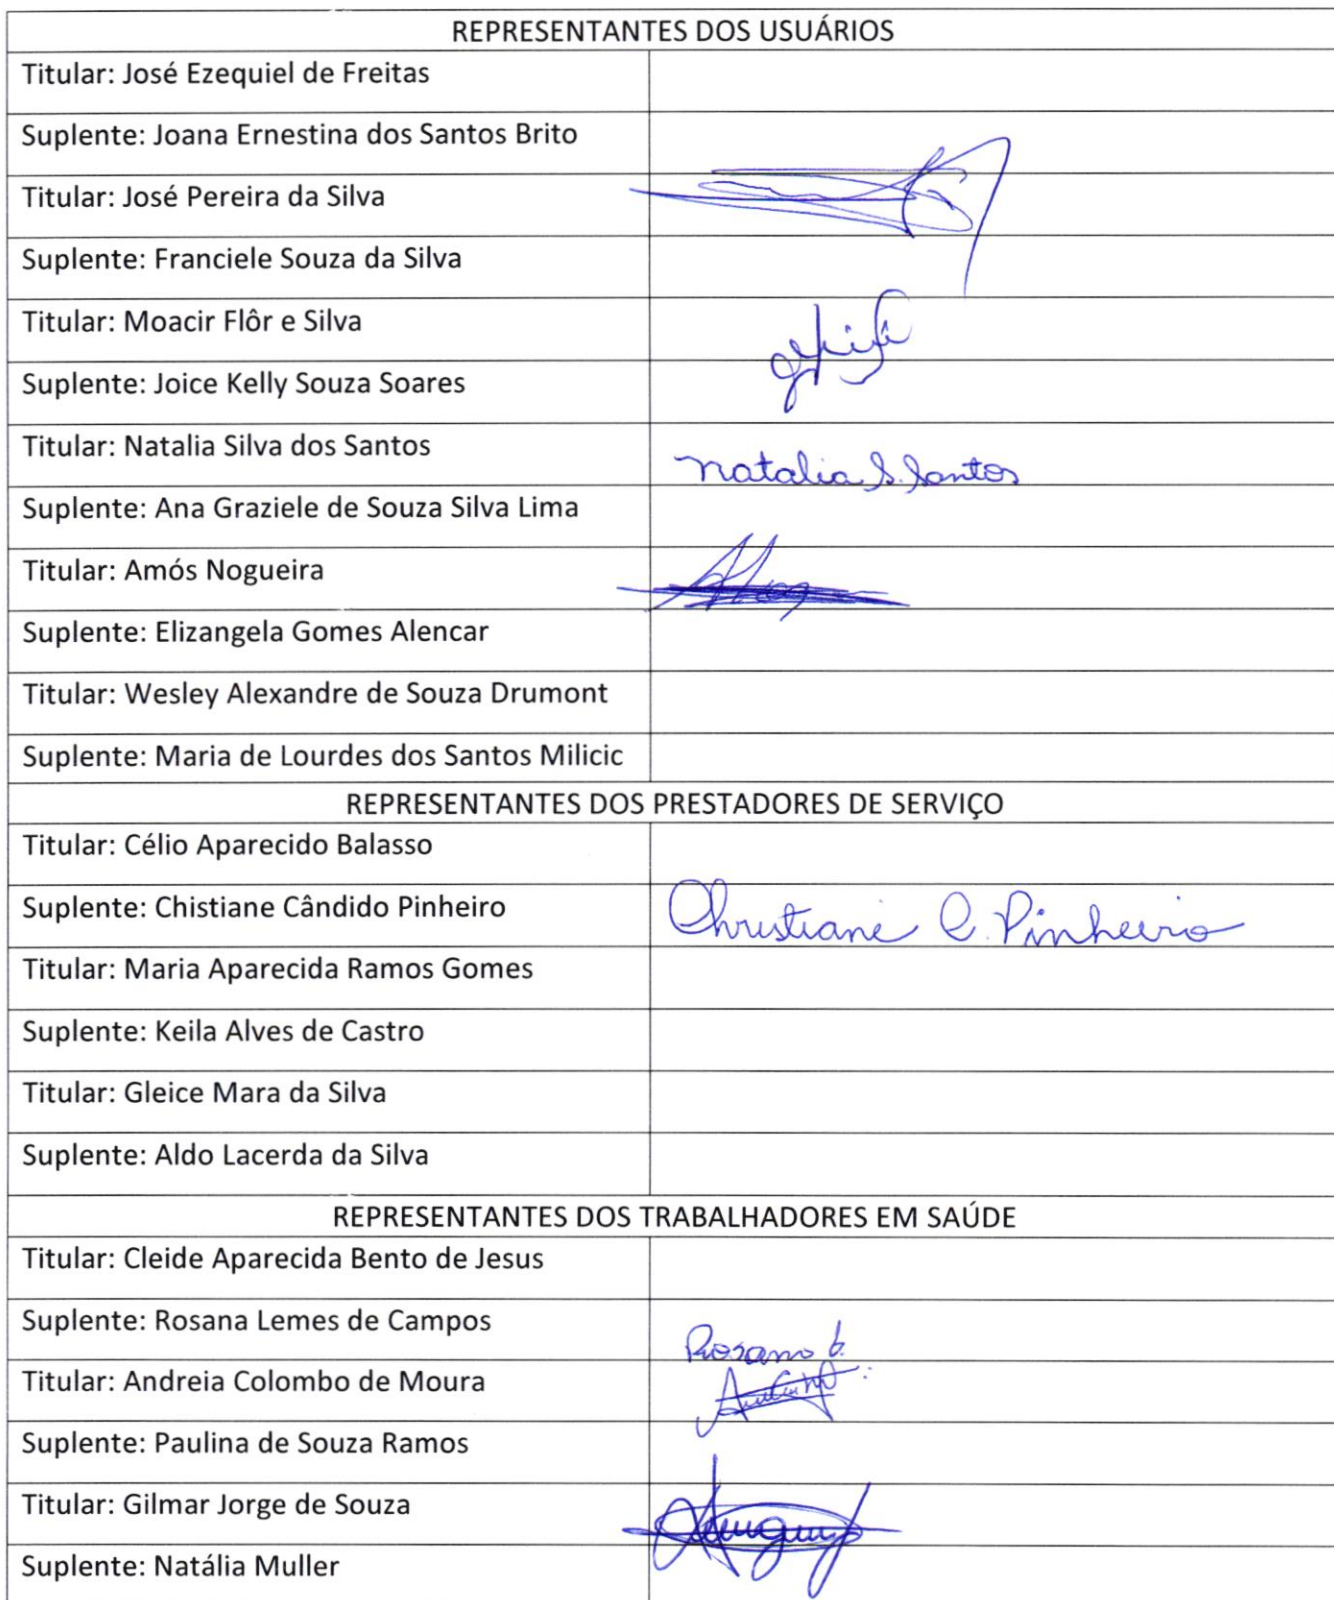 REPRESENTANTES DOS USUÁRIOS
Titular: José Ezequiel de Freitas
Suplente: Joana Ernestina dos Santos Brito
Titular: José Pereira da Silva
Suplente: Franciele Souza da Silva
Titular: Moacir Flôr e Silva
Suplente: Joice Kelly Souza Soares
Titular: Natalia Silva dos Santos
Natalia S. Santos
Suplente: Ana Graziele de Souza Silva Lima
Titular: Amós Nogueira
Suplente: Elizangela Gomes Alencar
Titular: Wesley Alexandre de Souza Drumont
Suplente: Maria de Lourdes dos Santos Milicic
REPRESENTANTES DOS PRESTADORES DE SERVIÇO
Titular: Célio Aparecido Balasso
Suplente: Chistiane Cândido Pinheiro
Christiane C. Pinheiro
Titular: Maria Aparecida Ramos Gomes
Suplente: Keila Alves de Castro
Titular: Gleice Mara da Silva
Suplente: Aldo Lacerda da Silva
REPRESENTANTES DOS TRABALHADORES EM SAÚDE
Titular: Cleide Aparecida Bento de Jesus
Suplente: Rosana Lemes de Campos
Rosana
Titular: Andreia Colombo de Moura
Suplente: Paulina de Souza Ramos
Titular: Gilmar Jorge de Souza
Suplente: Natália Muller